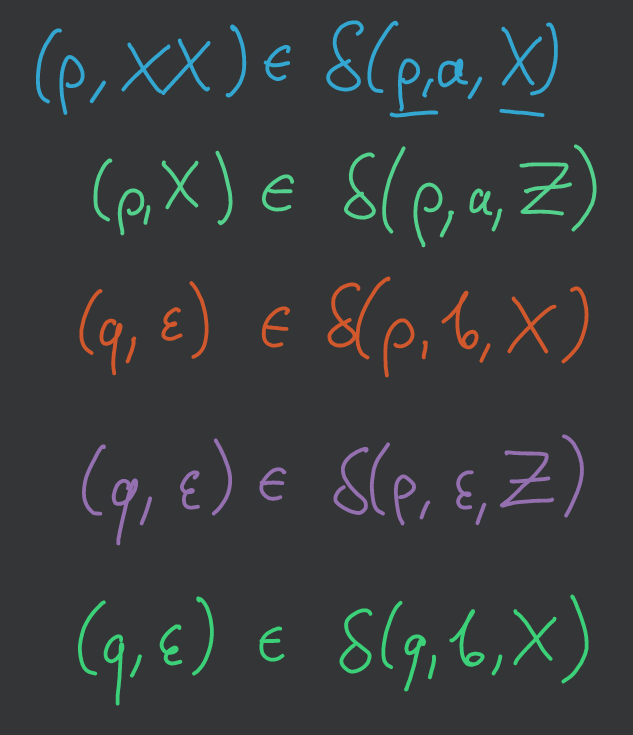 (p, XX) ∈ δ(p, a, X)
(p, X) ∈ δ(p, a, Z)
(q, ε) ∈ δ(p, b, X)
(q, ε) ∈ δ(p, ε, Z)
(q, ε) ∈ δ(q, b, X)